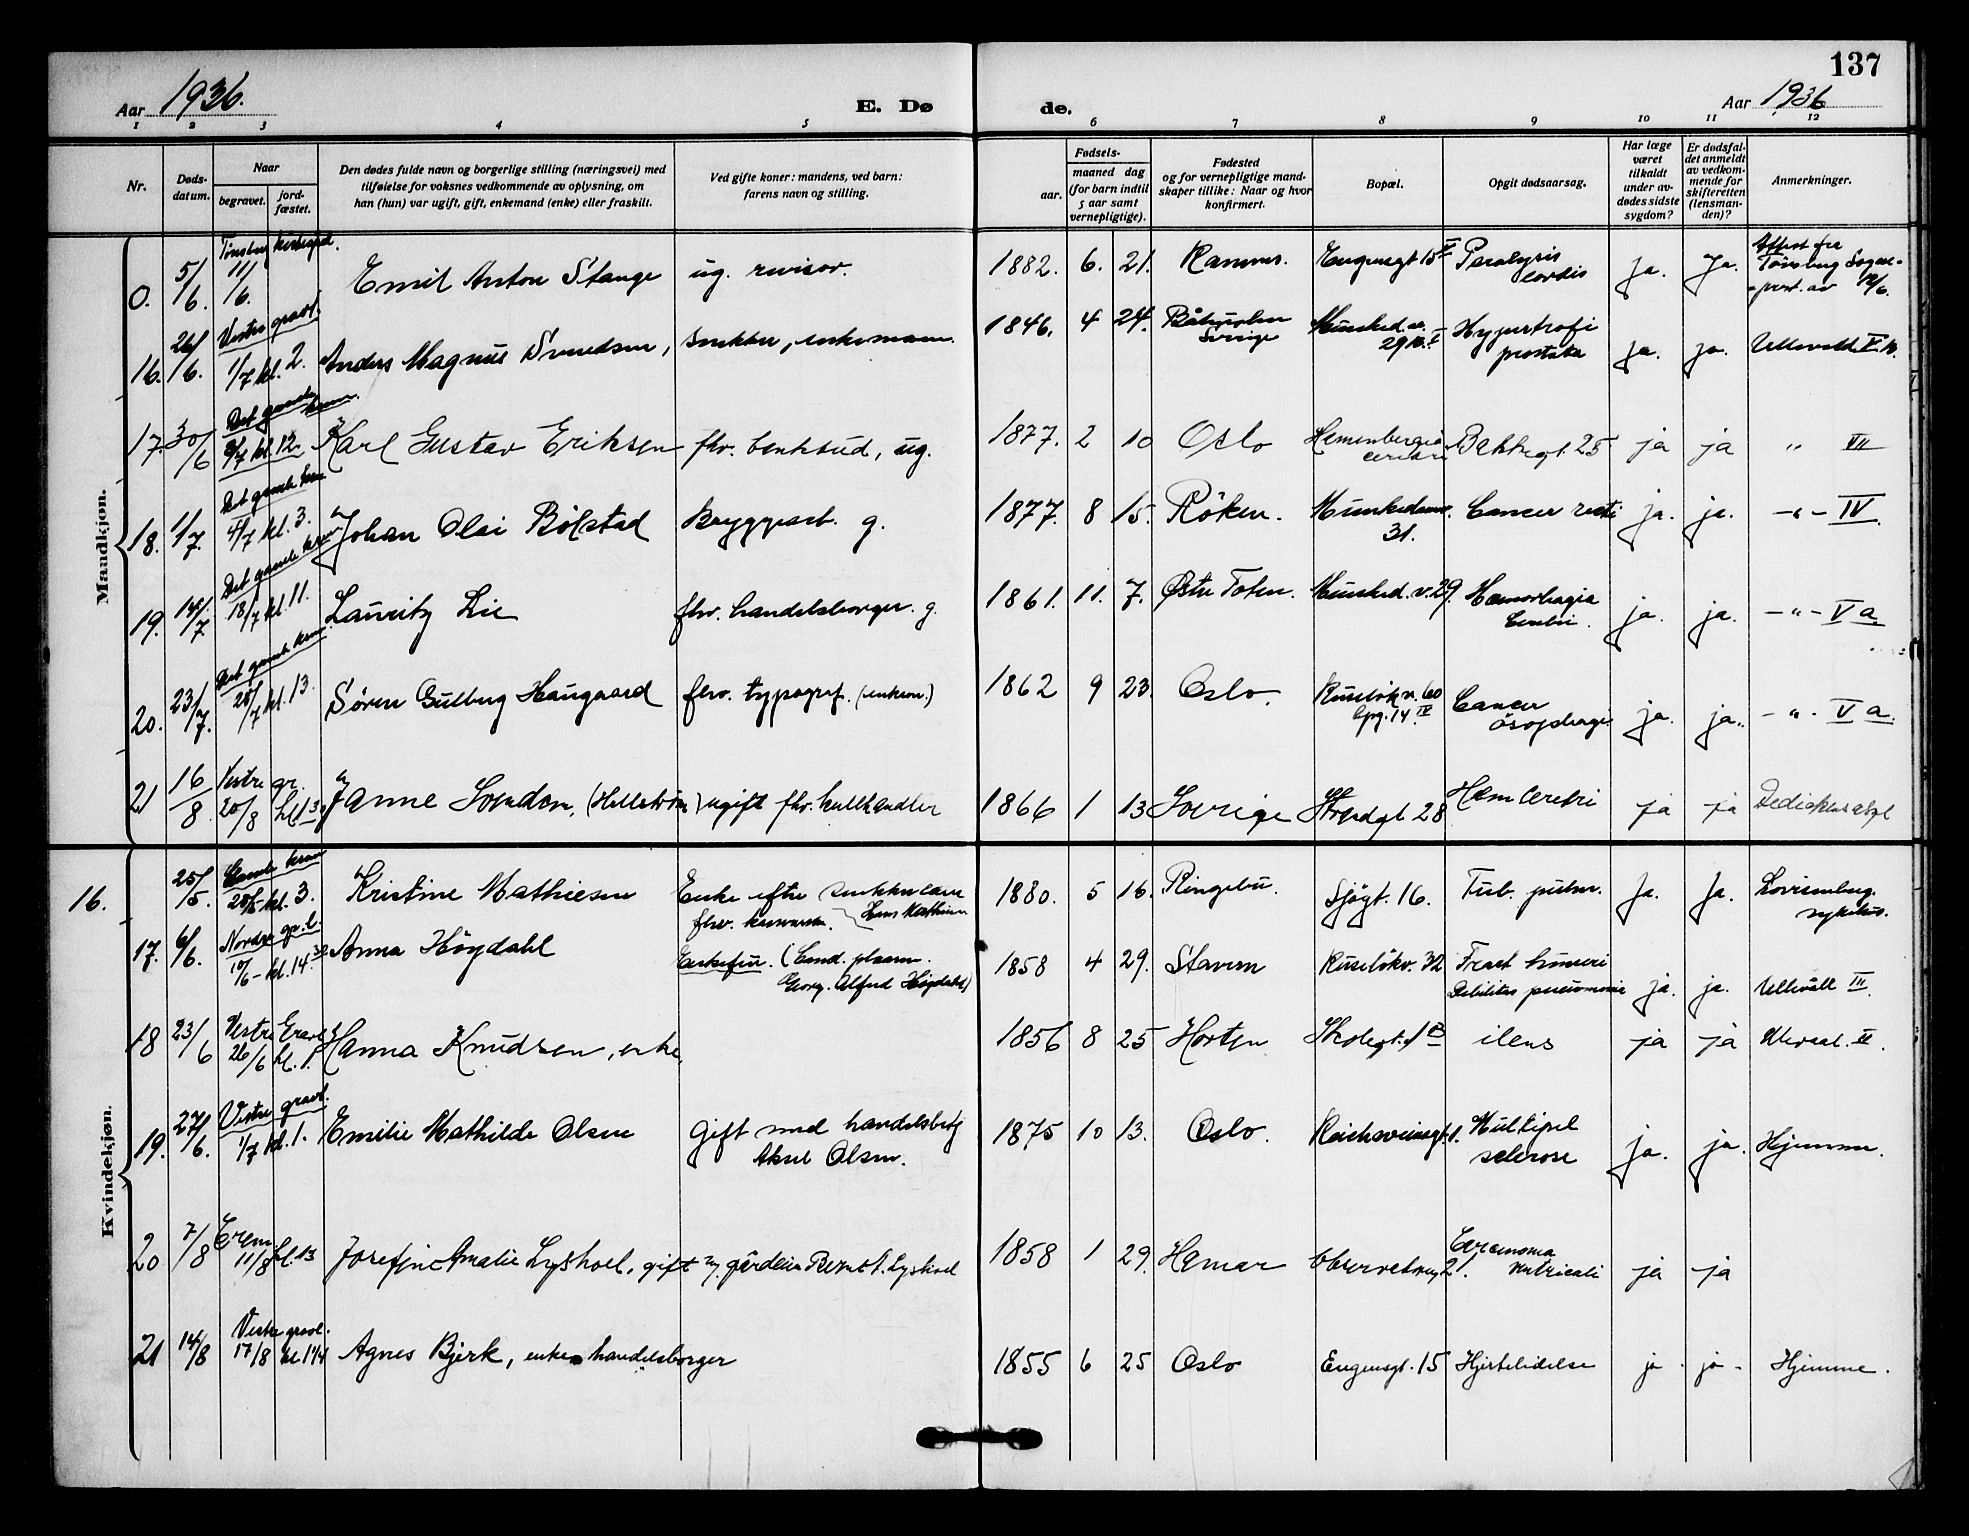 137
Aar 1936. E. Dø de. Aar 1936
1 2 3 4 5 6 7 8 9 10 11 12
Nr.
Døds-
datum.
Naar
begravet.
jord-
fæstet.
Den dødes fulde navn og borgerlige stilling (næringsvei) med
tilføielse for voksnes vedkommende av oplysning, om
han (hun) var ugift, gift, enkemand (enke) eller fraskilt.
Ved gifte koner: mandens, ved barn:
farens navn og stilling.
Fødsels-
aar.
maaned dag
(for barn indtil
5 aar samt
vernepligtige).
Fødested
og for vernepligtige mand-
skaper tillike: Naar og hvor
konfirmert.
Bopæl.
Opgit dødsaarsag.
Har læge
været
tilkaldt
under av-
dødes sidste
sygdom?
Er dødsfal-
det anmeldt
av vedkom-
mende for
skifteretten
(lensman-
den)?
Anmerkninger.
Mandkjøn.
0. 5/6. 11/6. Emil Anton Stange ug. revisor. 1882. 6. 21. Ramnes. Eugensgt 15 Paralysis cordis ja. ja. Attest fra Tønsberg
16. 26/6. Vestre gravl. 1/7 kl. 2. Anders Magnus Svendsen, snekker, enkemann. 1846. 4 24. Sverige Munked.v. Hypertrofi prostata ja. ja. Ullevål
17. 30/6 Det gamle krem. kl. 12 Karl Gustav Eriksen fhv. bankbud, ug. 1877. 2 10 Oslo Bakkegt. 25 ja ja " VII
18. 1/7. Det gamle krem 4/7 kl. 3. Johan Olai Bölstad Bryggearb. g. 1877. 8 15. Röken. Munkedamsv. 31. Cancer recti ja. ja. -"- IV.
19. 14/7. Det gamle krem 18/7 kl. 11. Lauritz Lie fhv. handelsborger. g. 1861. 11. 7. Østre Toten. Munked.v. 29. Hæmorhagia Cerebri. ja. ja. -"- V a.
20. 23/7. Det gamle krem. 28/7 kl. 13. Søren Gulberg Haugaard fhv. typograf. (enkem.) 1862 9 23. Oslo. Ruseløkv. 60 Opg. 14. IV Cancer ösophagi ja. ja. -"- V a.
21 16/8 Vestre gr. 20/8 Janne (Hellström) ugift fhv. kullhandler 1866 1 13 Sverige 28 Hæm Cerebri ja ja
Kvindekjøn.
16. 25/5. Gamle krem 28/5 kl. 3. Kristine Mathiesen Enke efter Hans Mathisen 1880. 5 16. Ringebu. Sjøgt. 16. Tub. pulm. ja. ja. Lovisenberg. sykehus.
17. 6/6. Nordre gr. l. 10/6 - kl. 14.30 Anna Høgdahl Enkefru. (Georg. Alfred Høgdahl) 1858 4 29. Stavern Ruseløkv. 32 Fract humeri Debilitas pneumonie ja. ja. Ullevål III.
18 23/6 Vestre Gravl 26/6 kl. 1. Hanna Knudsen, enke, 1856 8 25 Horten ilens ja ja II.
19. 27/6. Vestre gravl. 1/7 kl. 1. Emilie Mathilde Olsen Gift med handelsbetj Aksel Olsen. 1875 10 13. Oslo. Multipel sclerose ja. ja. Hjemme.
20 7/8 Crem. 11/8 kl. 13 Josefine Amalie Lyshoel, gift m. gårdeier Bernt A. Lyshoel 1858 1 29. Hamar Observatoriegt 21. Carcinoma ventriculi ja ja
21 14/8 Vestre gravl. 17/8 Agnes Bjerk, enke handelsborger 1855 6 25 Oslo Eugensgt. 15 Hjertelidelse ja ja Hjemme.